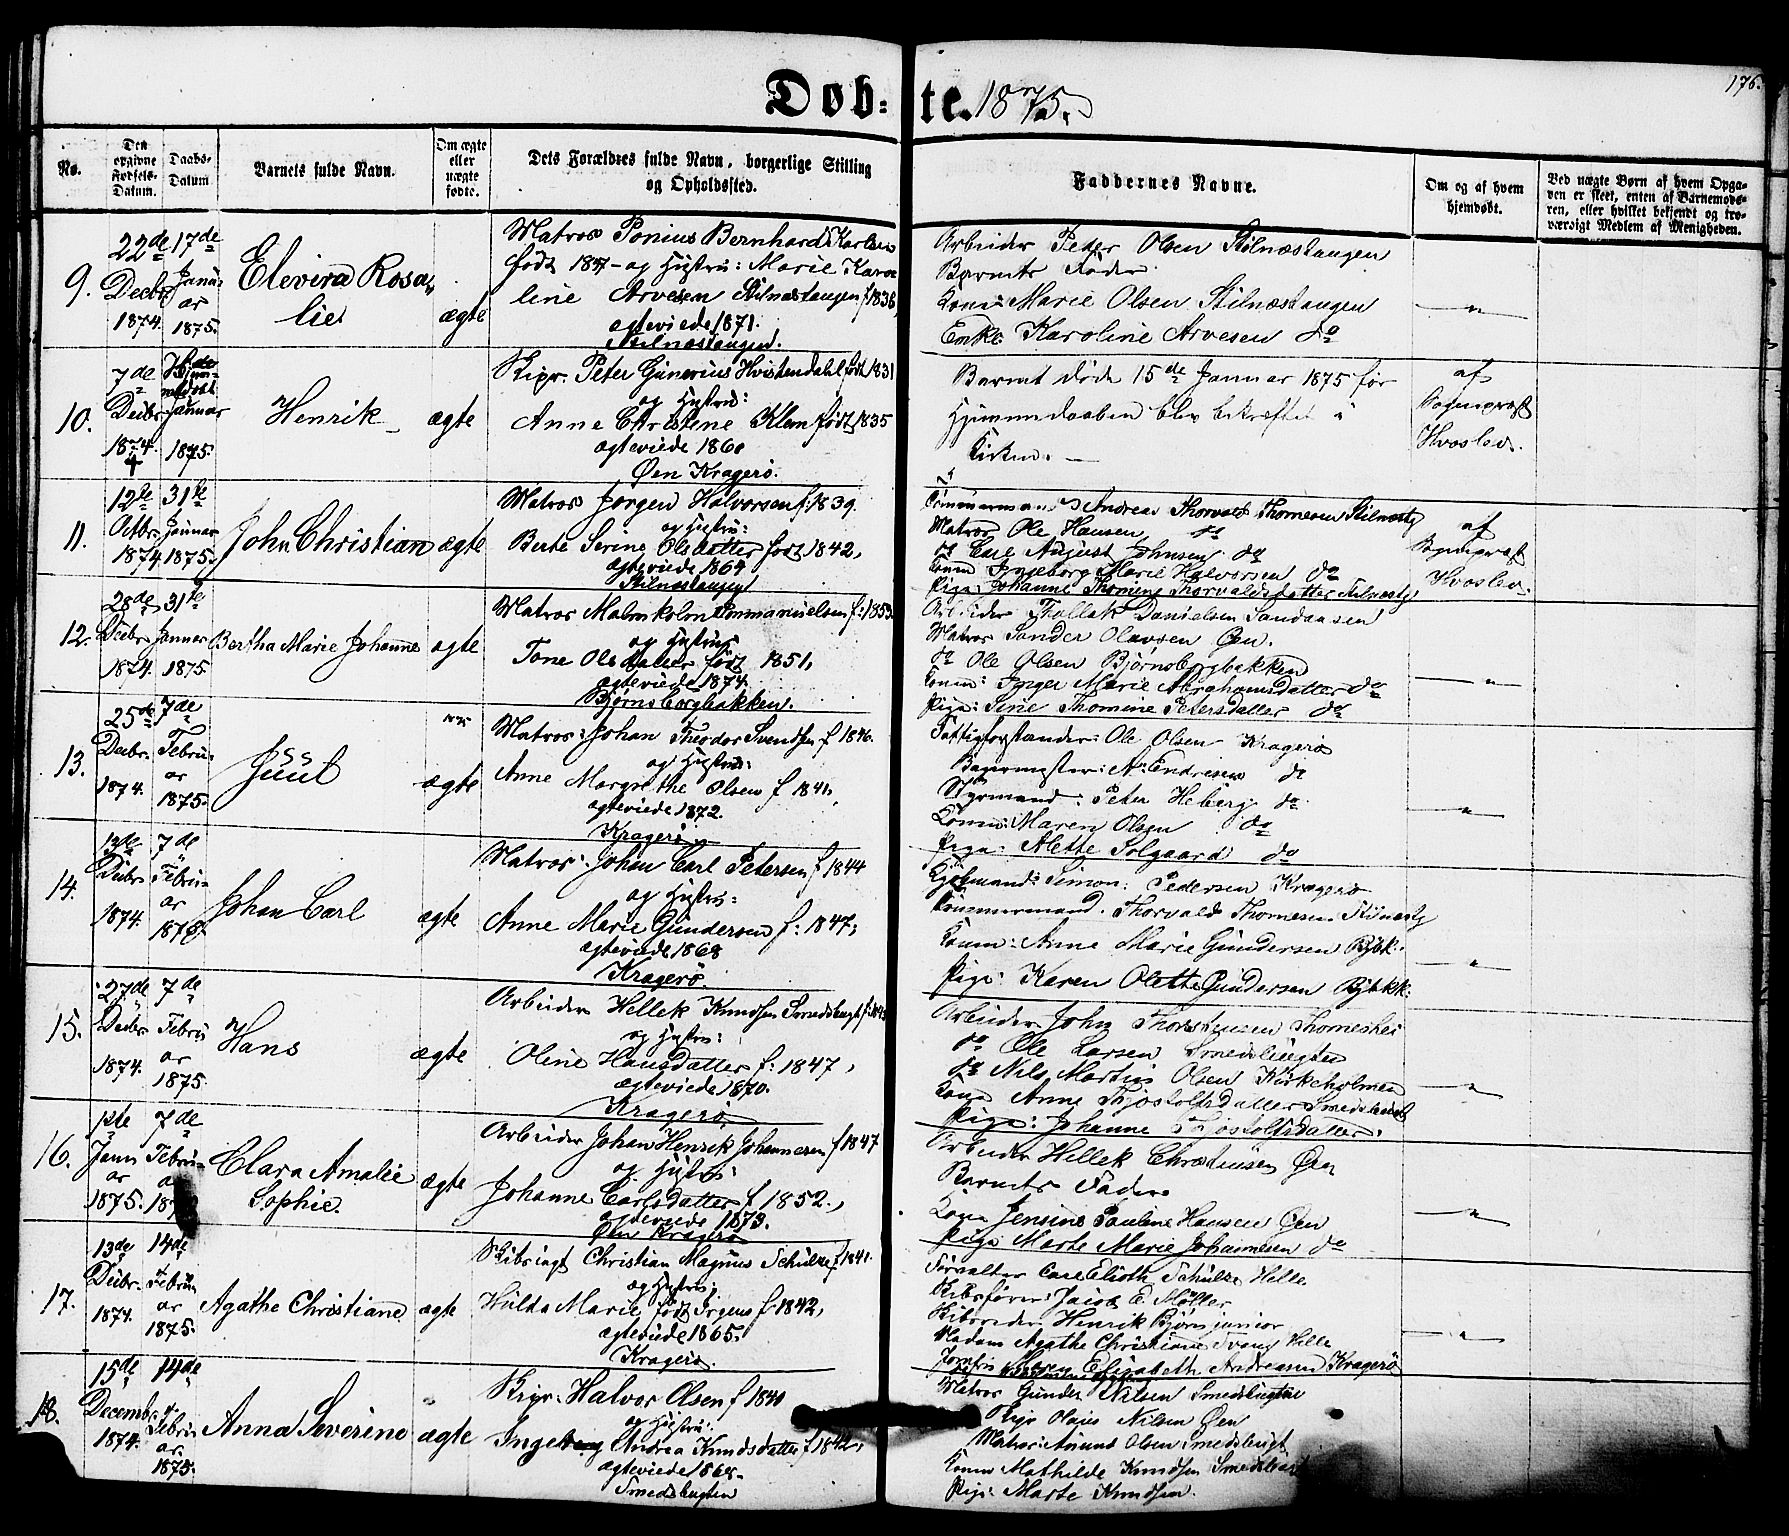 176.
Døb=te. 1875.
No.
Den opgivne Fødsels-Datum.
Daabs-Datum.
Barnets fulde Navn.
Om ægte eller uægte fødte.
Dets Forældres fulde Navn, borgerlige Stilling og Opholdssted.
Faddernes Navne.
Om og af hvem hjemdøbt.
Ved uægte Børn af hvem Opgaven er skeet, enten af Barnemoderen, eller hvilket bekjendt og troværdigt Medlem af Menigheden.
9.
22de Decbr. 1874.
17de Januar 1875.
Elevira Rosalie
ægte
Matros Ponius Bernhard Karlsen
født 1847 og Hustru: Marie Karo
line Arvesen Stilnæstangen f 1836,
ægteviede 1871.
Stilnæstangen.
Arbeider Peder Olsen Stilnæstangen
Barnets Fader
Kone: Marie Olsen Stilnæstangen
Enke: Karoline Arvesen do
— " —
10.
7de Decbr. 1874. +
Januar 1875.
Henrik
ægte
Skipr. Peter Gunerius Hvistendahl født 1831
og Hustru:
Anne Christene Klem født 1835
ægteviede 1860
Øen Kragerø.
Barnet døde 15de Januar 1875 før
Hjemmedaaben blev bekræftet i
Kirken. —
af
Sognepræst
Hvoslev.
11.
12te Octbr. 1874
31te Januar 1875.
John Christian
ægte
Matros Jørgen Halvorsen f. 1839.
og Hustru:
Berte Serine Olsdatter født 1842,
ægteviede 1864
Stilnæstangen
Tømmermand Andreas Thorvald Thomesen Stilnæstg
Matros Ole Hansen do
do Carl August Johnsen do
Kone Ingeborg Marie Halvorsen do
Pige: Johanne Thomine Thorvaldsdatter Stilnæstg
af
Sognepræst
Hvoslev.
12.
28de Decbr. 1874.
31te Januar 1875.
Bertha Marie Johanne
ægte
Matros Malmkolm Emmanuelsen f. 1853
og Hustru
Tone Olsdatter født 1851,
ægteviede 1874.
Bjørnsborgbakken.
Arbeider Thollak Danielsen Sandaasen
Matros Sander Olavsen Øen.
do Ole Olsen Bjørnsborgbakken
Kone: Inger Marie Abrahamsdatter do
Pige: Sine Thomine Petersdatter do
— " —
13.
25de Decbr. 1874.
7de Februar 1875.
Juul
ægte
Matros: Johan Theodor Svendsen f 1846.
og Hustru:
Anne Margrethe Olsen f 1841.,
ægteviede 1872.
Kragerø
Fattigforstander: Ole Olsen Kragerø
Bagermester: A. Endresen do
Styrmand: Peter Heberg do
Kone: Maren Olsen do
Pige: Alette Solgaard do
— " —
14.
13de Decbr. 1874.
7de Februar 1875.
Johan Carl
ægte
Matros: Johan Carl Petersen f 1844
og Hustru:
Anne Marie Gundersen f: 1847;
ægteviede 1868
Kragerø.
Kjøbmand: Simon: Pedersen Kragerø
Tømmermand. Thorvald Thomesen Stilnæstg
Kone: Anne Marie Gundersen Bjbk:
Pige: Karen Olette Gundersen Bjbkk:
— " —
15.
27de Decbr. 1874.
7de Februar 1875.
Hans
ægte
Arbeider Hellek Knudsen Smedsbugt
og Hustru:
Oline Hansdatter f: 1847,
ægteviede 1870.
Kragerø,
Arbeider John Thorstensen Thomeshei
do Ole Larsen Smedsbugten
do Nils Martin Olsen Kirkeholmen
Kone Anne Thjostolfsdatter Smedsbugt
Pige: Johanne Thjostolfsdatter.
— " —
16.
1ste Januar 1875.
7de Februar
Clara Amalie Sophie.
ægte
Arbeider Johan Henrik Johannesen f 1847
og Hustru:
Johanne Carlsdatter f 1852.,
ægteviede 1873.
Øen Kragerø
Arbeider Hellek Christensen Øen
Barnets Fader
Kone Jensine Pauline Hansen Øen
Pige: Marte Marie Johannesen do
— " —
17.
13de Decbr. 1874.
14de Februar 1875.
Agathe Christiane
ægte
Skibsingt Christian Magnus Schulze f 1841.
og Hustru;
Hulda Marie født Irgens f. 1842,
ægteviede 1865.
Kragerø.
Forvalter Carl Elioth Schulze Helle
Skibsfører: Jacob E. Møller
Skibsreder Henrik Bjørn junior
Madam Agathe Christiane Tvang Helle
Jomfru Maren Elisabeth Andresen Kragerø
— " —
18.
15de Decembr. 1874.
14de Februar. 1875.
Anna Severine
ægte
Skipr. Halvor Olsen f 1840
og Hustru:
Ingeborg Andrea Knudsdatter f 1842,
ægteviede 1868.
Smedsbugten
Matros Gunder Nilsen Smedsbugten
Skipr Olaus Nilsen Øen
Matros: Amund Olsen Smedsbugt
Kone Mathilde Knudsen Smedsbugt
Pige: Marte Knudsen.